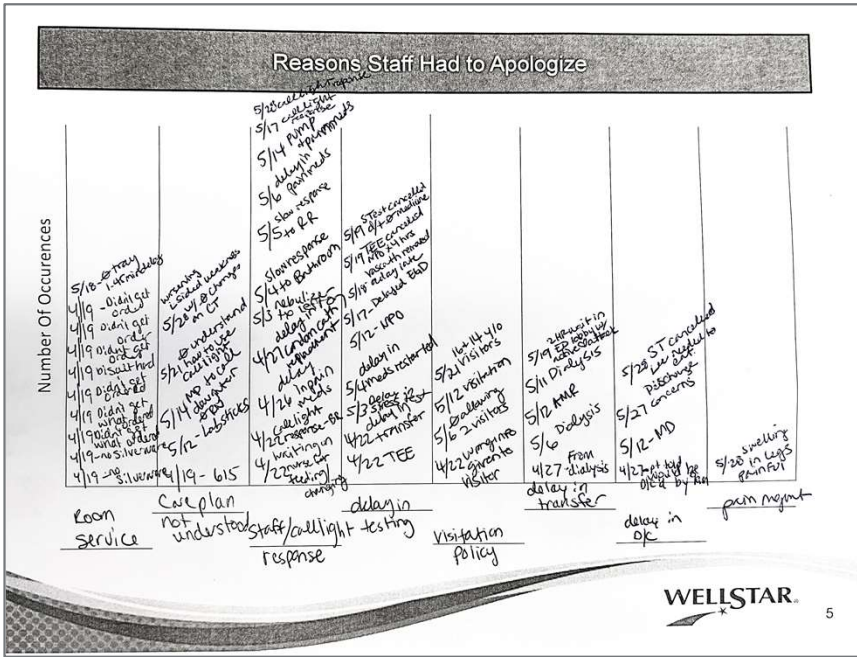 Reasons Staff Had to Apologize
Number Of Occurences
5/18 - Ø tray
1.45 min delay
4/19 - Didn't get
order
4/19 Didn't get
order
4/19 Didn't get
order
4/19 Biscuit hard
4/19 Didn't get
what ordered
4/19 Didn't get
what ordered
4/19 - no silverware
4/19 - no
silverware
Room
Service
worsening
sided weakness
5/28 w/ Ø changes
on CT
Ø understand
5/21 how to use
call light
5/14 MD to call
daughter
5/12 - Labsticks
4/19 - 615
Care plan
not
understood
5/28 call light response
5/17 call light
response
5/14 pump
delay in
5/6 pain meds
slow response
5/5 to RR
slow response
5/4 to Bathroom
5/3 nebulizer
delay in
4/27 condom cath
replacement
delay
4/26 in pain
meds
call light
4/22 response - BR
4/ waiting on
22 nurse for
feeding/
changing
Staff/call light
response
5/19 STest cancelled
5/19 TEE cancelled
5/18 a day late
5/17 - Delayed EGD
5/12 - NPO
delay in
5/4 meds restarted
5/3 Delay in
stress test
delay in
4/22 transfer
4/22 TEE
delay in
testing
16 + 14 y/o
5/21 visitors
5/12 visitation
5/ Ø allowing
6 2 visitors
4/22 wrong info
given to
visitor
visitation
policy
2 HR wait in
5/19 ED lobby w/
5/11 Dialysis
5/12 AMR
5/6 Dialysis
From
4/27 - dialysis
delay in
transfer
5/28 ST cancelled
Discharge
5/27 concerns
5/12 - MD
4/27 pt told
would be
D/C'd by
delay in
D/C
5/28 swelling
in legs
painful
pain mgmt
WELLSTAR
5